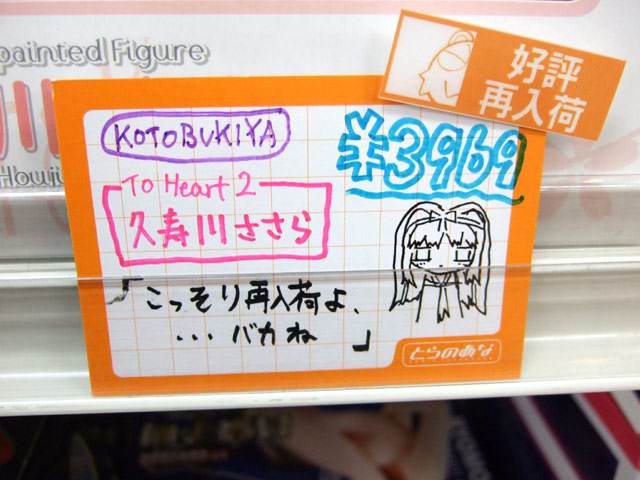 painted Figure
川
Houju
好評
再入荷
KOTOBUKIYA
¥3969
To Heart 2
久寿川ささら
「こっそり再入荷よ、
...バカね 」
とらのあな